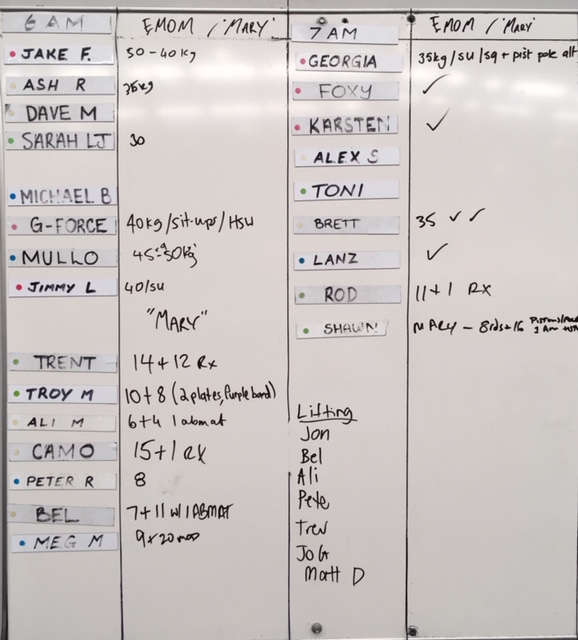 6 AM EMOM / "MARY"
JAKE F. 50-40kg
ASH R 35kg
DAVE M
SARAH LJ 30
MICHAEL B
G-FORCE 40kg/sit-ups/HSU
MULLO 45-50kg
JIMMY L 40/SU
"MARY"
TRENT 14+12 Rx
TROY M 10+8 (2 plates, Purple band)
ALI M 6+4 1 abmat
CAMO 15+1 RX
PETER R 8
BEL 7+11 W/1 ABMAT
MEG M
7 AM EMOM / "MARY"
GEORGIA 35kg/SU/sq + pist pole alt
FOXY ✓
KARSTEN ✓
ALEX S
TONI
BRETT 35 ✓ ✓
LANZ ✓
ROD 11+1 RX
SHAWN MARY - 8rds+16
Lifting
Jon
Bel
Ali
Pete
Trev
Jo G
Matt D